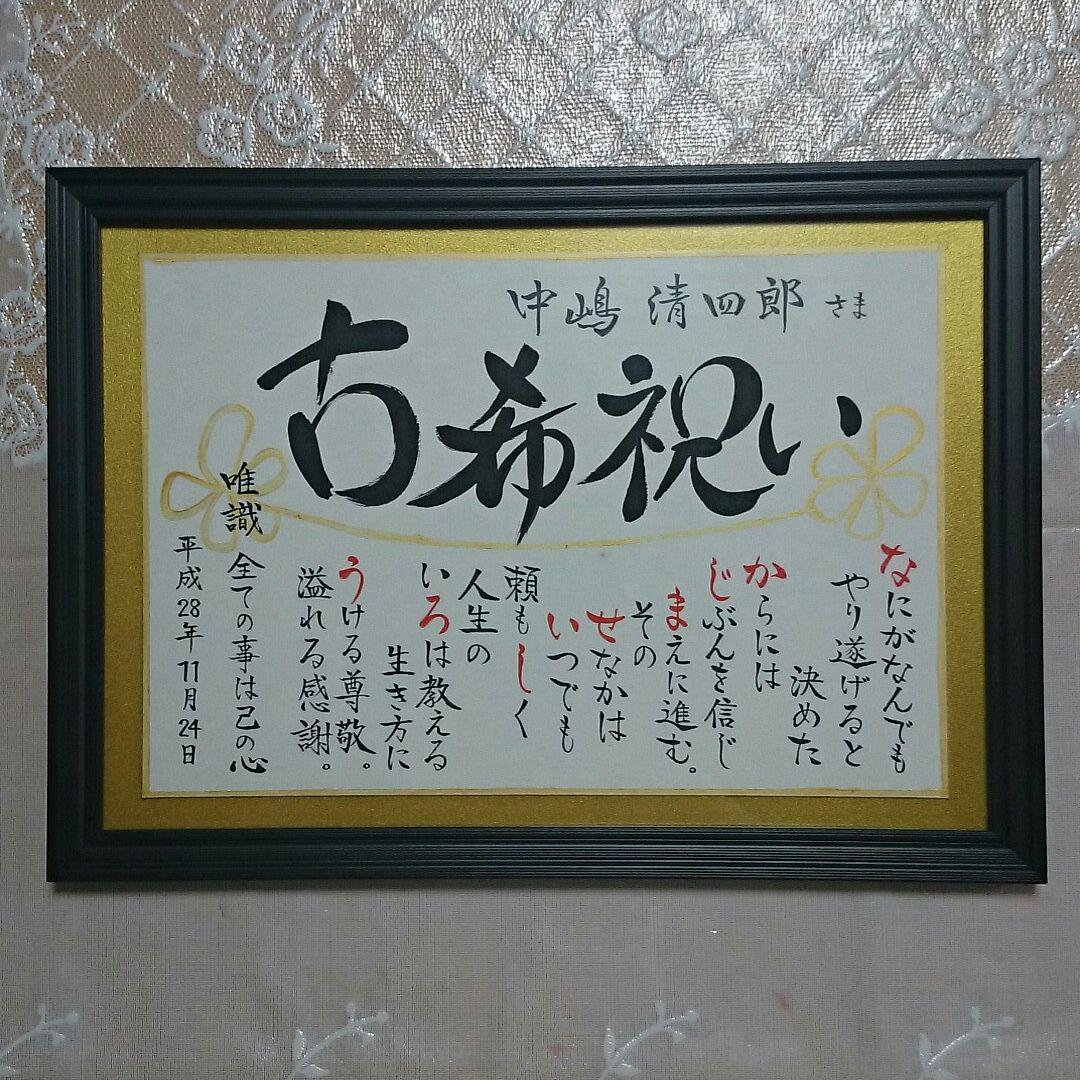 中嶋 清四郎 さま
古希祝い
なにがなんでも
やり遂げると
決めた
からには
じぶんを信じ
まえに進む。
その
せなかは
いつでも
頼もしく
人生の
いろは教える
生き方に
うける尊敬。
溢れる感謝。
唯識 全ての事は己の心
平成28年11月24日